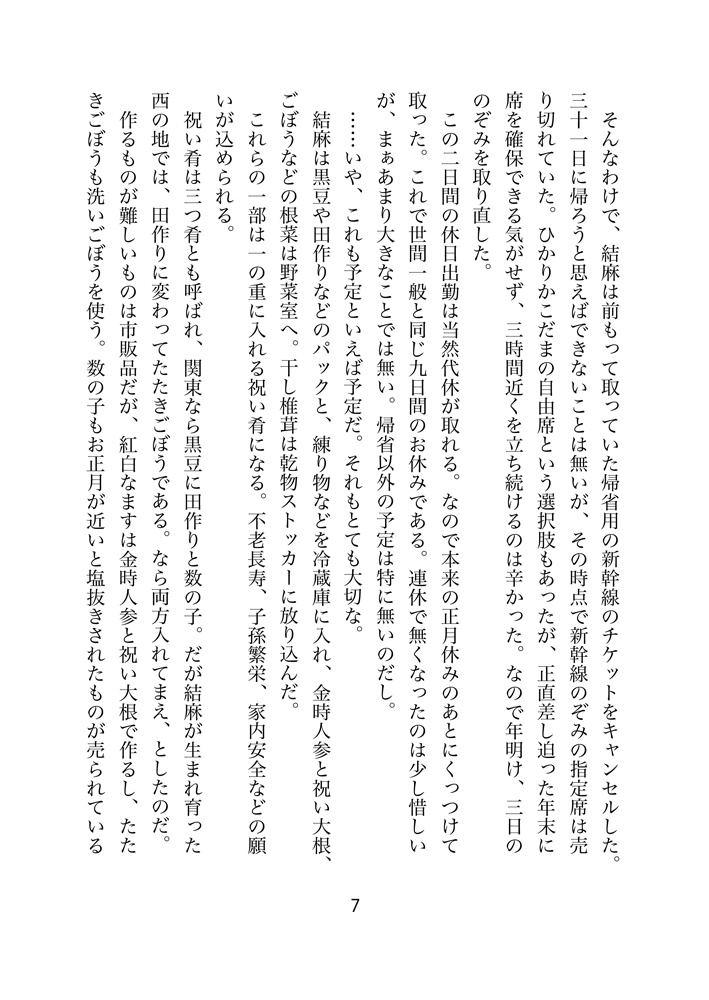 そんなわけで、結麻は前もって取っていた帰省用の新幹線のチケットをキャンセルした。
三十一日に帰ろうと思えばできないことは無いが、その時点で新幹線のぞみの指定席は売
り切れていた。ひかりかこだまの自由席という選択肢もあったが、正直差し迫った年末に
席を確保できる気がせず、三時間近くを立ち続けるのは辛かった。なので年明け、三日の
のぞみを取り直した。
　この二日間の休日出勤は当然代休が取れる。なので本来の正月休みのあとにくっつけて
取った。これで世間一般と同じ九日間のお休みである。連休で無くなったのは少し惜しい
が、まぁあまり大きなことでは無い。帰省以外の予定は特に無いのだし。
　……いや、これも予定といえば予定だ。それもとても大切な。
　結麻は黒豆や田作りなどのパックと、練り物などを冷蔵庫に入れ、金時人参と祝い大根、
ごぼうなどの根菜は野菜室へ。干し椎茸は乾物ストッカーに放り込んだ。
　これらの一部は一の重に入れる祝い肴になる。不老長寿、子孫繁栄、家内安全などの願
いが込められる。
　祝い肴は三つ肴とも呼ばれ、関東なら黒豆に田作りと数の子。だが結麻が生まれ育った
西の地では、田作りに変わってたたきごぼうである。なら両方入れてまえ、としたのだ。
　作るものが難しいものは市販品だが、紅白なますは金時人参と祝い大根で作るし、たた
きごぼうも洗いごぼうを使う。数の子もお正月が近いと塩抜きされたものが売られている
7